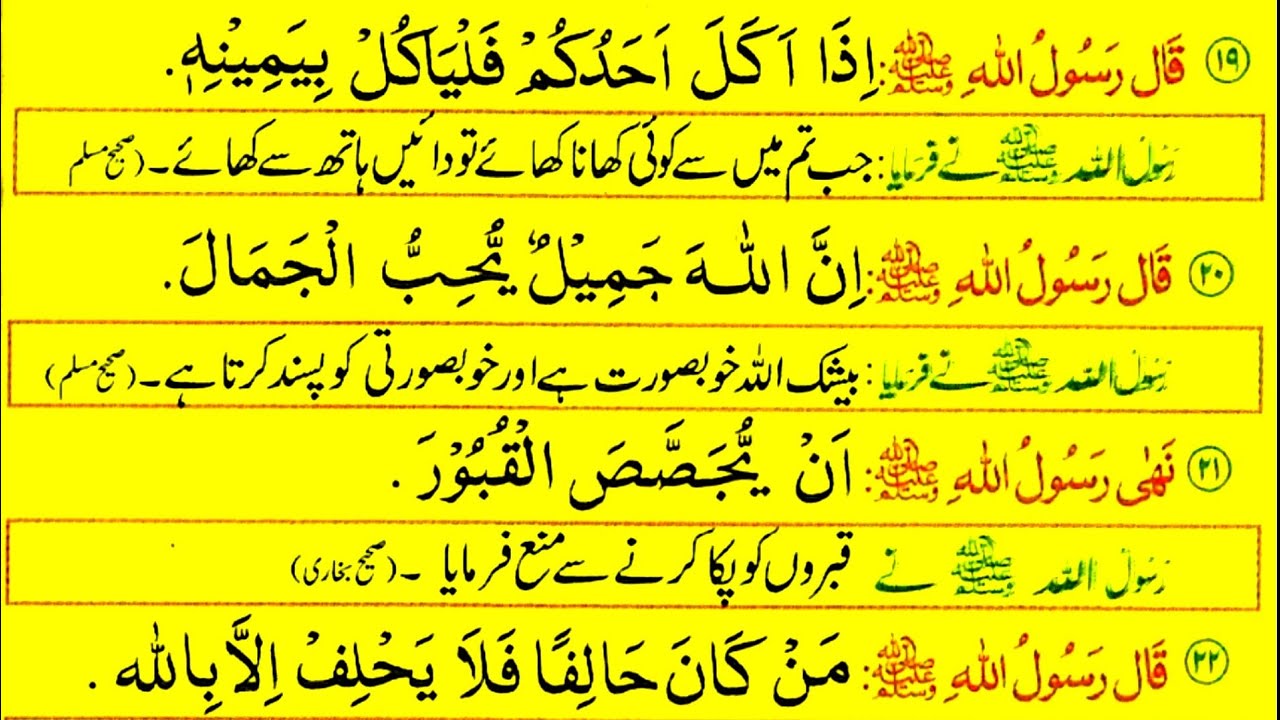 ۱۹ قَالَ رَسُولُ اللهِ ﷺ: اِذَا اَكَلَ اَحَدُكُمْ فَلْيَاكُلْ بِيَمِيْنِهٖ.
رَسُولُ اللہ ﷺ نے فرمایا: جب تم میں سے کوئی کھانا کھائے تو دائیں ہاتھ سے کھائے۔ (صحیح مسلم
۲۰ قَالَ رَسُولُ اللهِ ﷺ: اِنَّ اللهَ جَمِيْلٌ يُّحِبُّ الْجَمَالَ.
رَسُولُ اللہ ﷺ نے فرمایا: بیشک اللہ خوبصورت ہے اور خوبصورتی کو پسند کرتا ہے۔ (صحیح مسلم)
۲۱ نَهٰى رَسُولُ اللهِ ﷺ: اَنْ يُّجَصَّصَ الْقُبُوْرَ.
رَسُولُ اللہ ﷺ نے قبروں کو پکا کرنے سے منع فرمایا۔ (صحیح بخاری)
۲۲ قَالَ رَسُولُ اللهِ ﷺ: مَنْ كَانَ حَالِفًا فَلَا يَحْلِفْ اِلَّا بِالله.